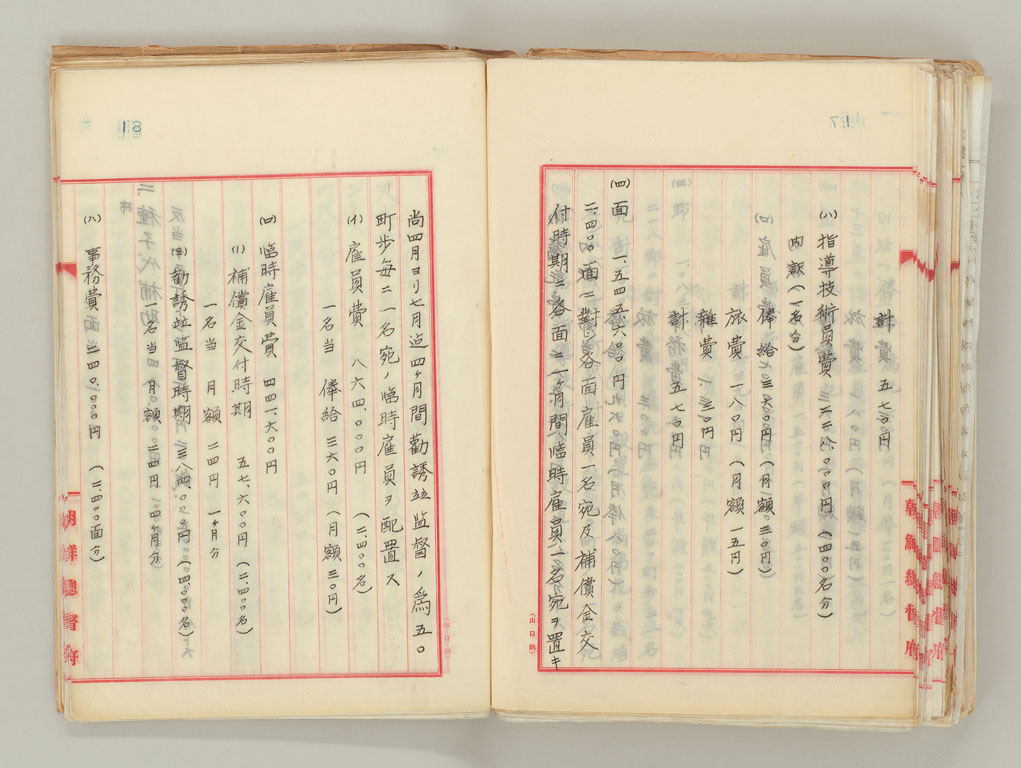 117
計 五七〇円
(ハ) 指導技術員費 二二八、〇〇〇円 (四〇〇名分)
内訳 (一名分)
俸給 三六〇円 (月額 三〇円)
旅費 一八〇円 (月額 一五円)
雑費 三〇円
計 五七〇円
(四) 面 一、五四五、六〇〇円
二、四〇〇面ニ對シ各面雇員一名宛及補償金交
付時期ニ各面ニ一ヶ月間臨時雇員一名宛ヲ置キ
朝鮮總督府
118
尚四月ヨリ七月迄四ヶ月間勸誘竝監督ノ爲五〇
町歩每ニ一名宛ノ臨時雇員ヲ配置ス
(イ) 雇員費 八六四、〇〇〇円 (二、四〇〇名)
一名当 俸給 三六〇円 (月額 三〇円)
(ロ) 臨時雇員費 四四一、六〇〇円
(1) 補償金交付時期 五七、六〇〇円 (二、四〇〇名)
一名当 月額 二四円 一ヶ月分
(2) 勸誘竝監督時期 三八四、〇〇〇円 (四、〇〇〇名)
一名当 月額 二四円 四ヶ月分
(ハ) 事務費 二四〇、〇〇〇円 (二、四〇〇面分)
朝鮮總督府